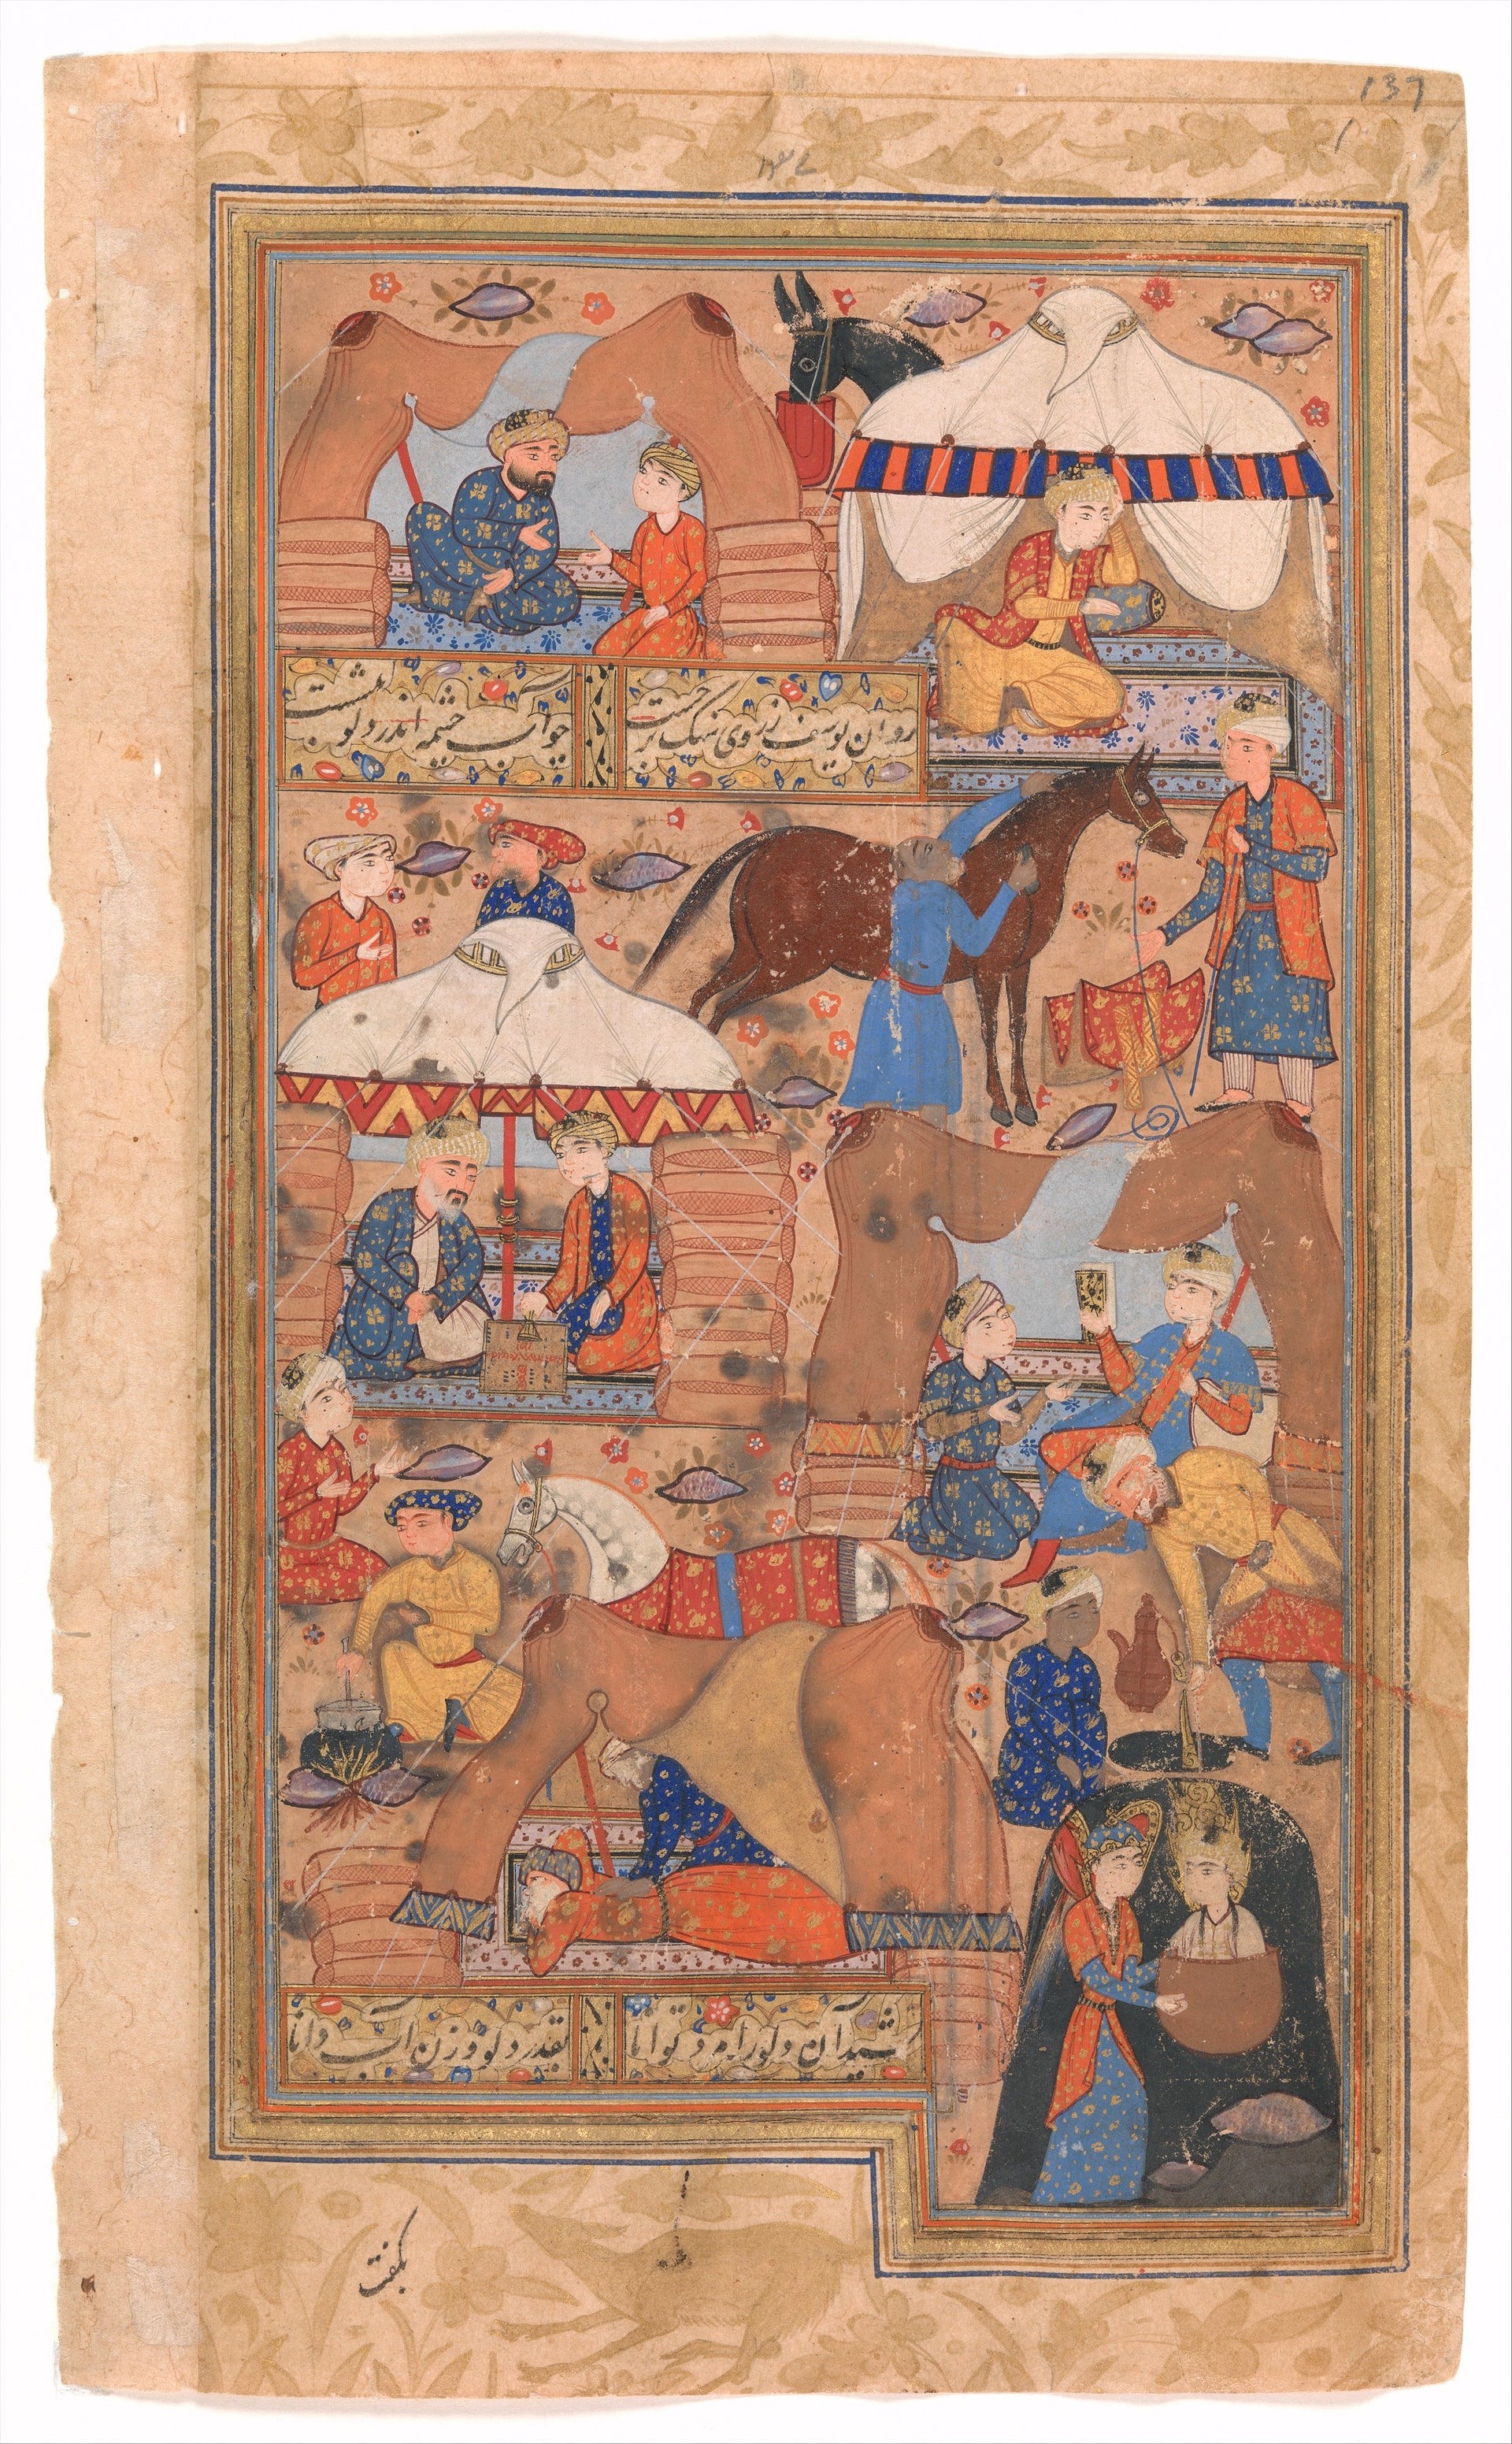 137
روان یوسف ز روی سنگ برجست
چو آب چشمه اندر دلو بنشست
کشید آن دلو را مرد توانا
بقدر دلو و وزن آب دانا
بگفت